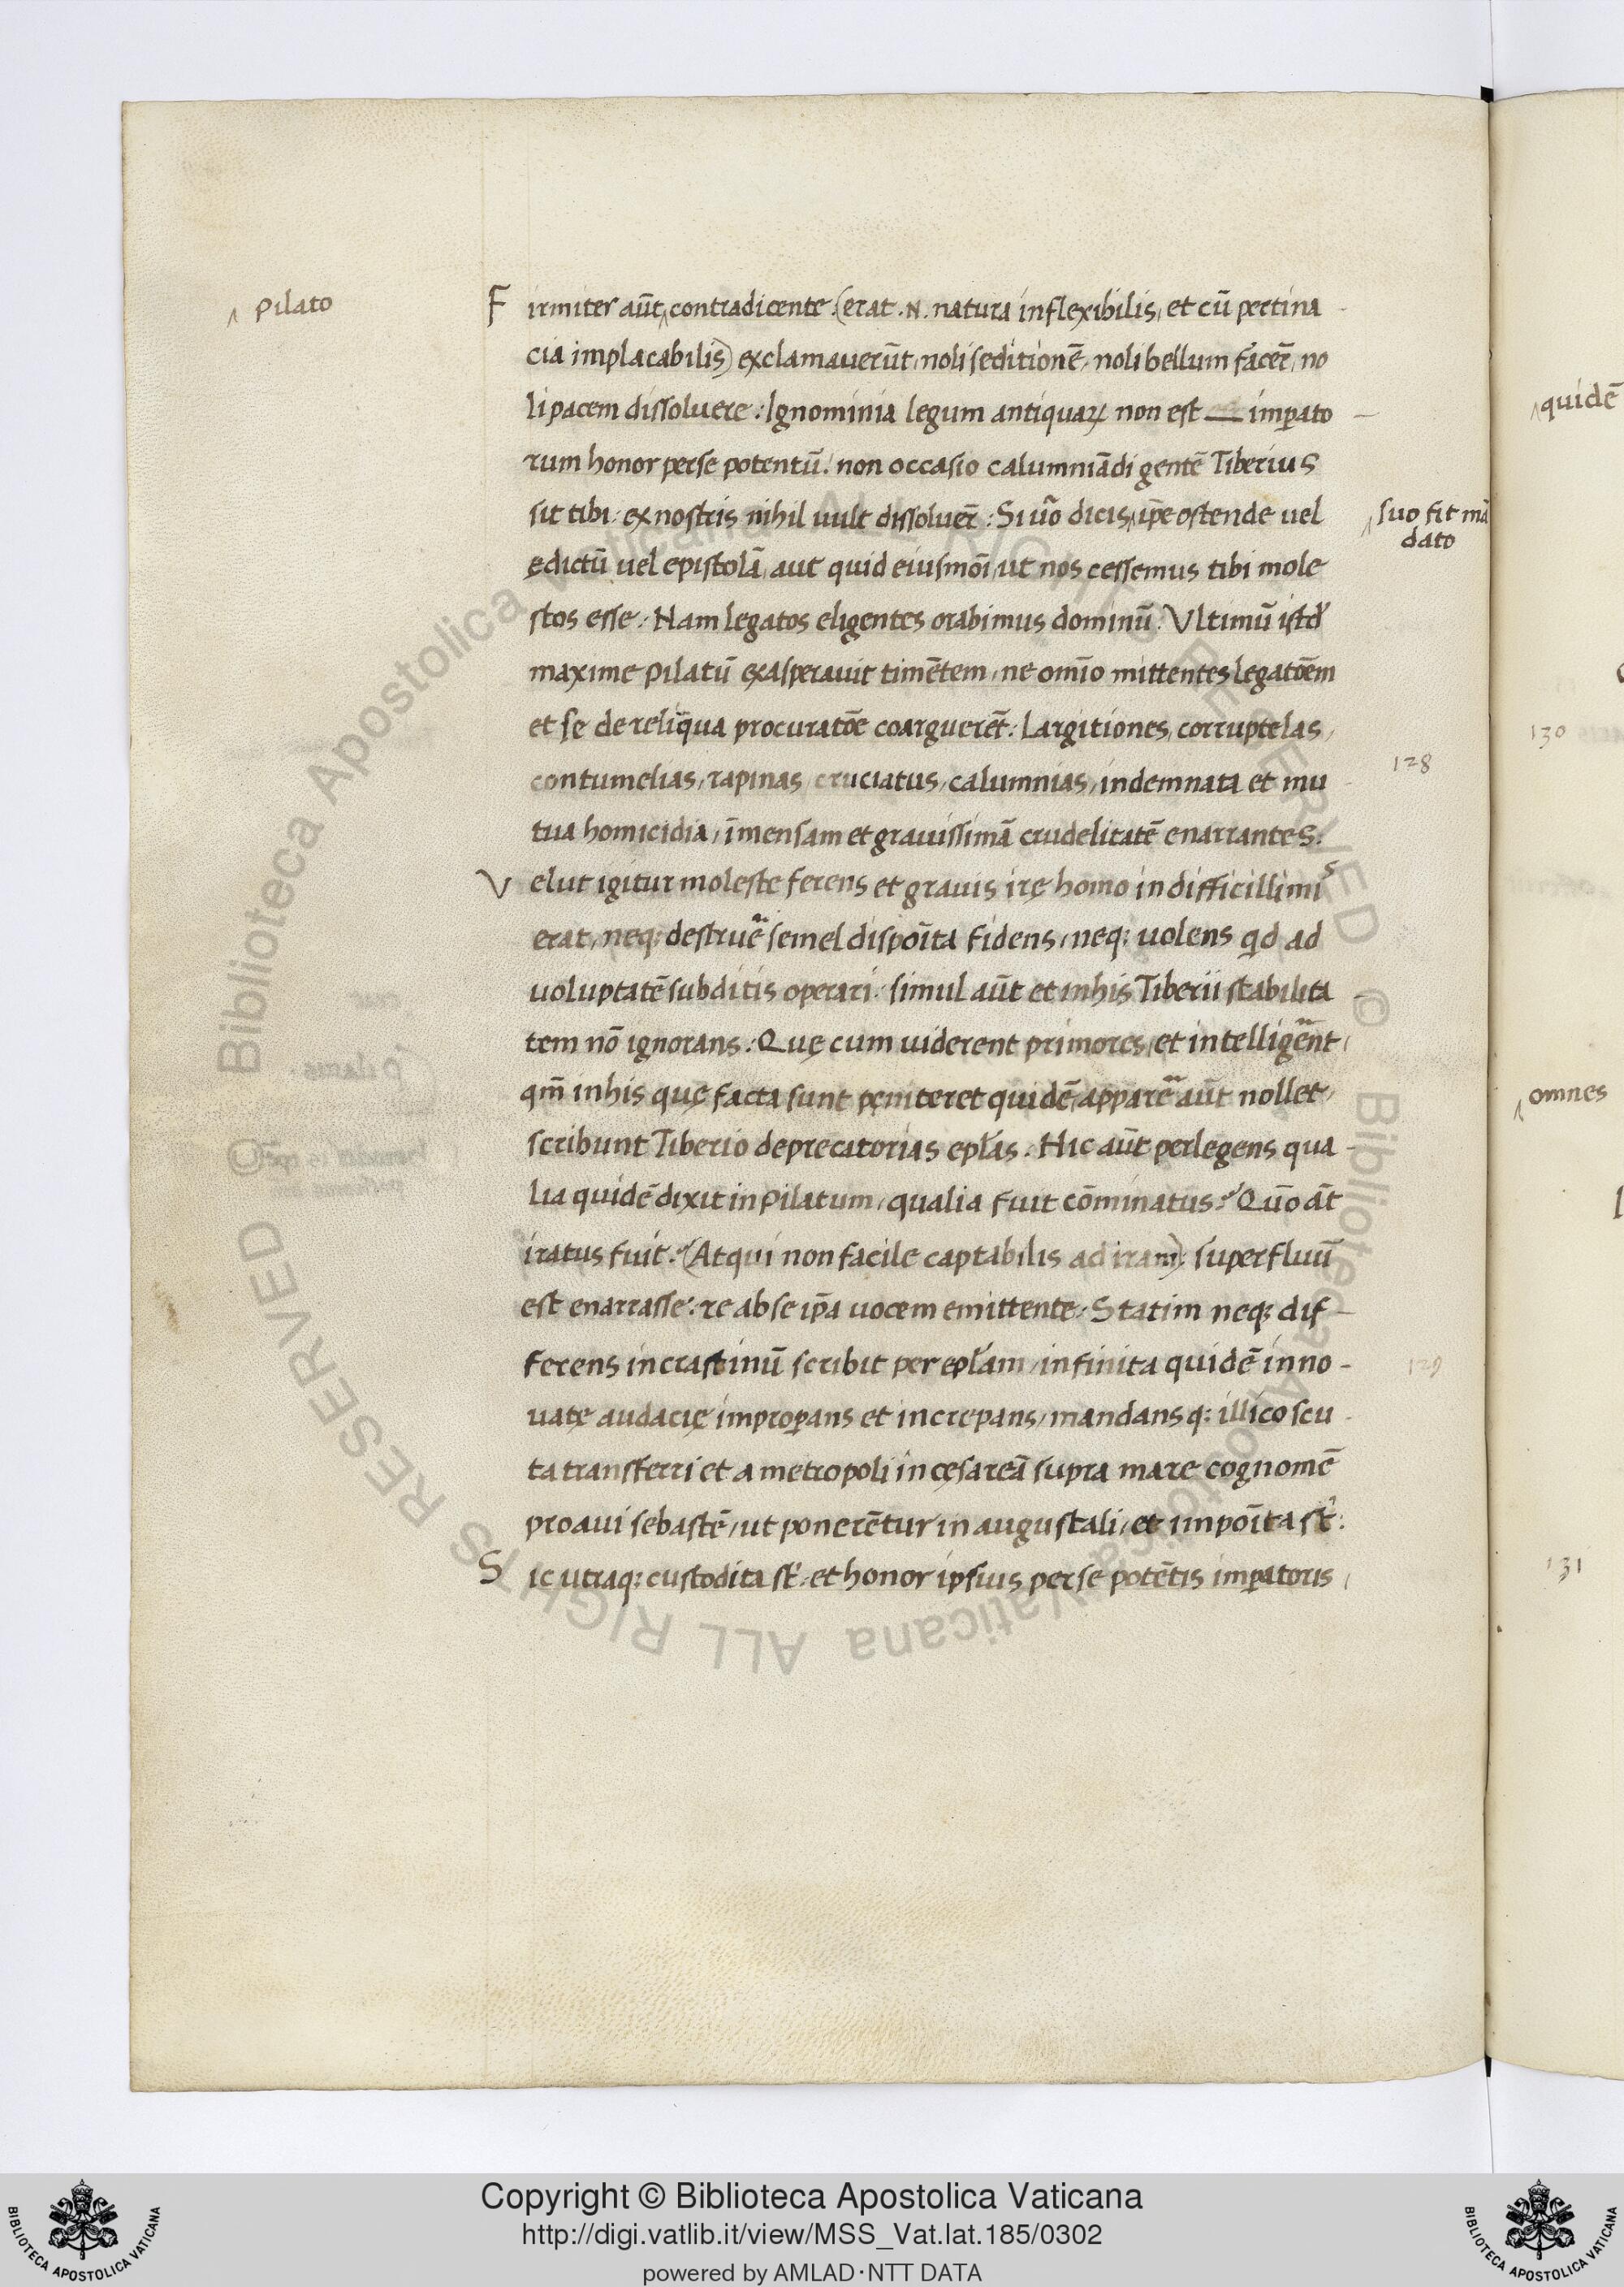 ‸ pilato
F irmiter aūt‸contradicente. (erat .N. natura inflexibilis, et cū pertina
cia implacabilis) exclamauerūt, noli seditionē, noli bellum facer̄, no
li pacem dissoluere: Ignominia legum antiquaꝝ non est imꝑato
rum honor per se potentū: non occasio calumniādi gentē Tiberius
sit tibi: ex nostris nihil uult dissoluer̄: Si uo̅ dicis‸ip̄e ostende uel
‸suo fit mā
dato
ędictū uel epistolā, aut quid eiusmōi, ut nos cessemus tibi mole
stos esse: Nam legatos eligentes orabimus dominū. Vltimū istd'
maxime pilatū exasperauit timētem, ne omīo mittentes legatōem
et se de reliq̄ua procuratōe coarguerēt: Largitiones, corruptelas,
contumelias, rapinas, cruciatus, calumnias, indemnata et mu
128
tua homicidia, īmensam et grauissimā crudelitatē enarrantes:
V elut igitur moleste ferens et grauis irę homo in difficillimis
erat, neq; destruē semel dispōita fidens, neq; uolens qd ad
uoluptatē subditis operari: simul aūt et in his Tiberii stabilita
tem nō ignorans: Quę cum uiderent primores, et intelligēnt,
qm̄ in his quę facta sunt pęniteret quidē, apparē aūt nollet,
scribunt Tiberio deprecatorias ep̄las. Hic aūt perlegens qua
lia quidē dixit in pilatum, qualia fuit cōminatus? Quō āt
iratus fuit? (Atqui non facile captabilis ad iram): superfluū
est enarrasse: re ab se ip̄a uocem emittente. Statim neq; dif
ferens in crastinū scribit per ep̄lam, infinita quidē inno
129
uatę audacię improꝑans et increpans, mandansq; illico scu
ta transferri et a metropoli in cęsareā supra mare cognomē
proaui sebastē, ut ponerētur in augustali, et impōita st̄:
S ic utraq; custodita st̄: et honor ipsius per se potētis imꝑatoris,
‸quidē
130
‸omnes
131
Copyright © Biblioteca Apostolica Vaticana
http://digi.vatlib.it/view/MSS_Vat.lat.185/0302
powered by AMLAD·NTT DATA
BIBLIOTECA APOSTOLICA VATICANA
BIBLIOTECA APOSTOLICA VATICANA
© Biblioteca Apostolica Vaticana ALL RIGHTS RESERVED
© Biblioteca Apostolica Vaticana ALL RIGHTS RESERVED